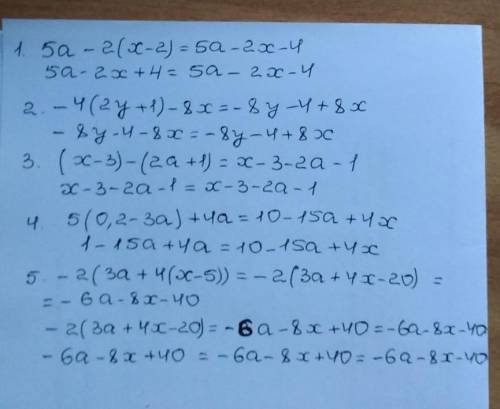 1. 5a - 2(x-2) = 5a - 2x - 4
5a - 2x + 4 = 5a - 2x - 4
2. -4(2y+1) - 8x = -8y - 4 + 8x
- 8y - 4 - 8x = -8y - 4 + 8x
3. (x-3) - (2a+1) = x - 3 - 2a - 1
x - 3 - 2a - 1 = x - 3 - 2a - 1
4. 5(0,2 - 3a) + 4a = 10 - 15a + 4x
1 - 15a + 4a = 10 - 15a + 4x
5. - 2(3a + 4(x-5)) = -2(3a + 4x - 20) =
= - 6a - 8x - 40
- 2(3a + 4x - 20) = - 6a - 8x + 40 = -6a - 8x - 40
- 6a - 8x + 40 = -6a - 8x + 40 = -6a - 8x - 40